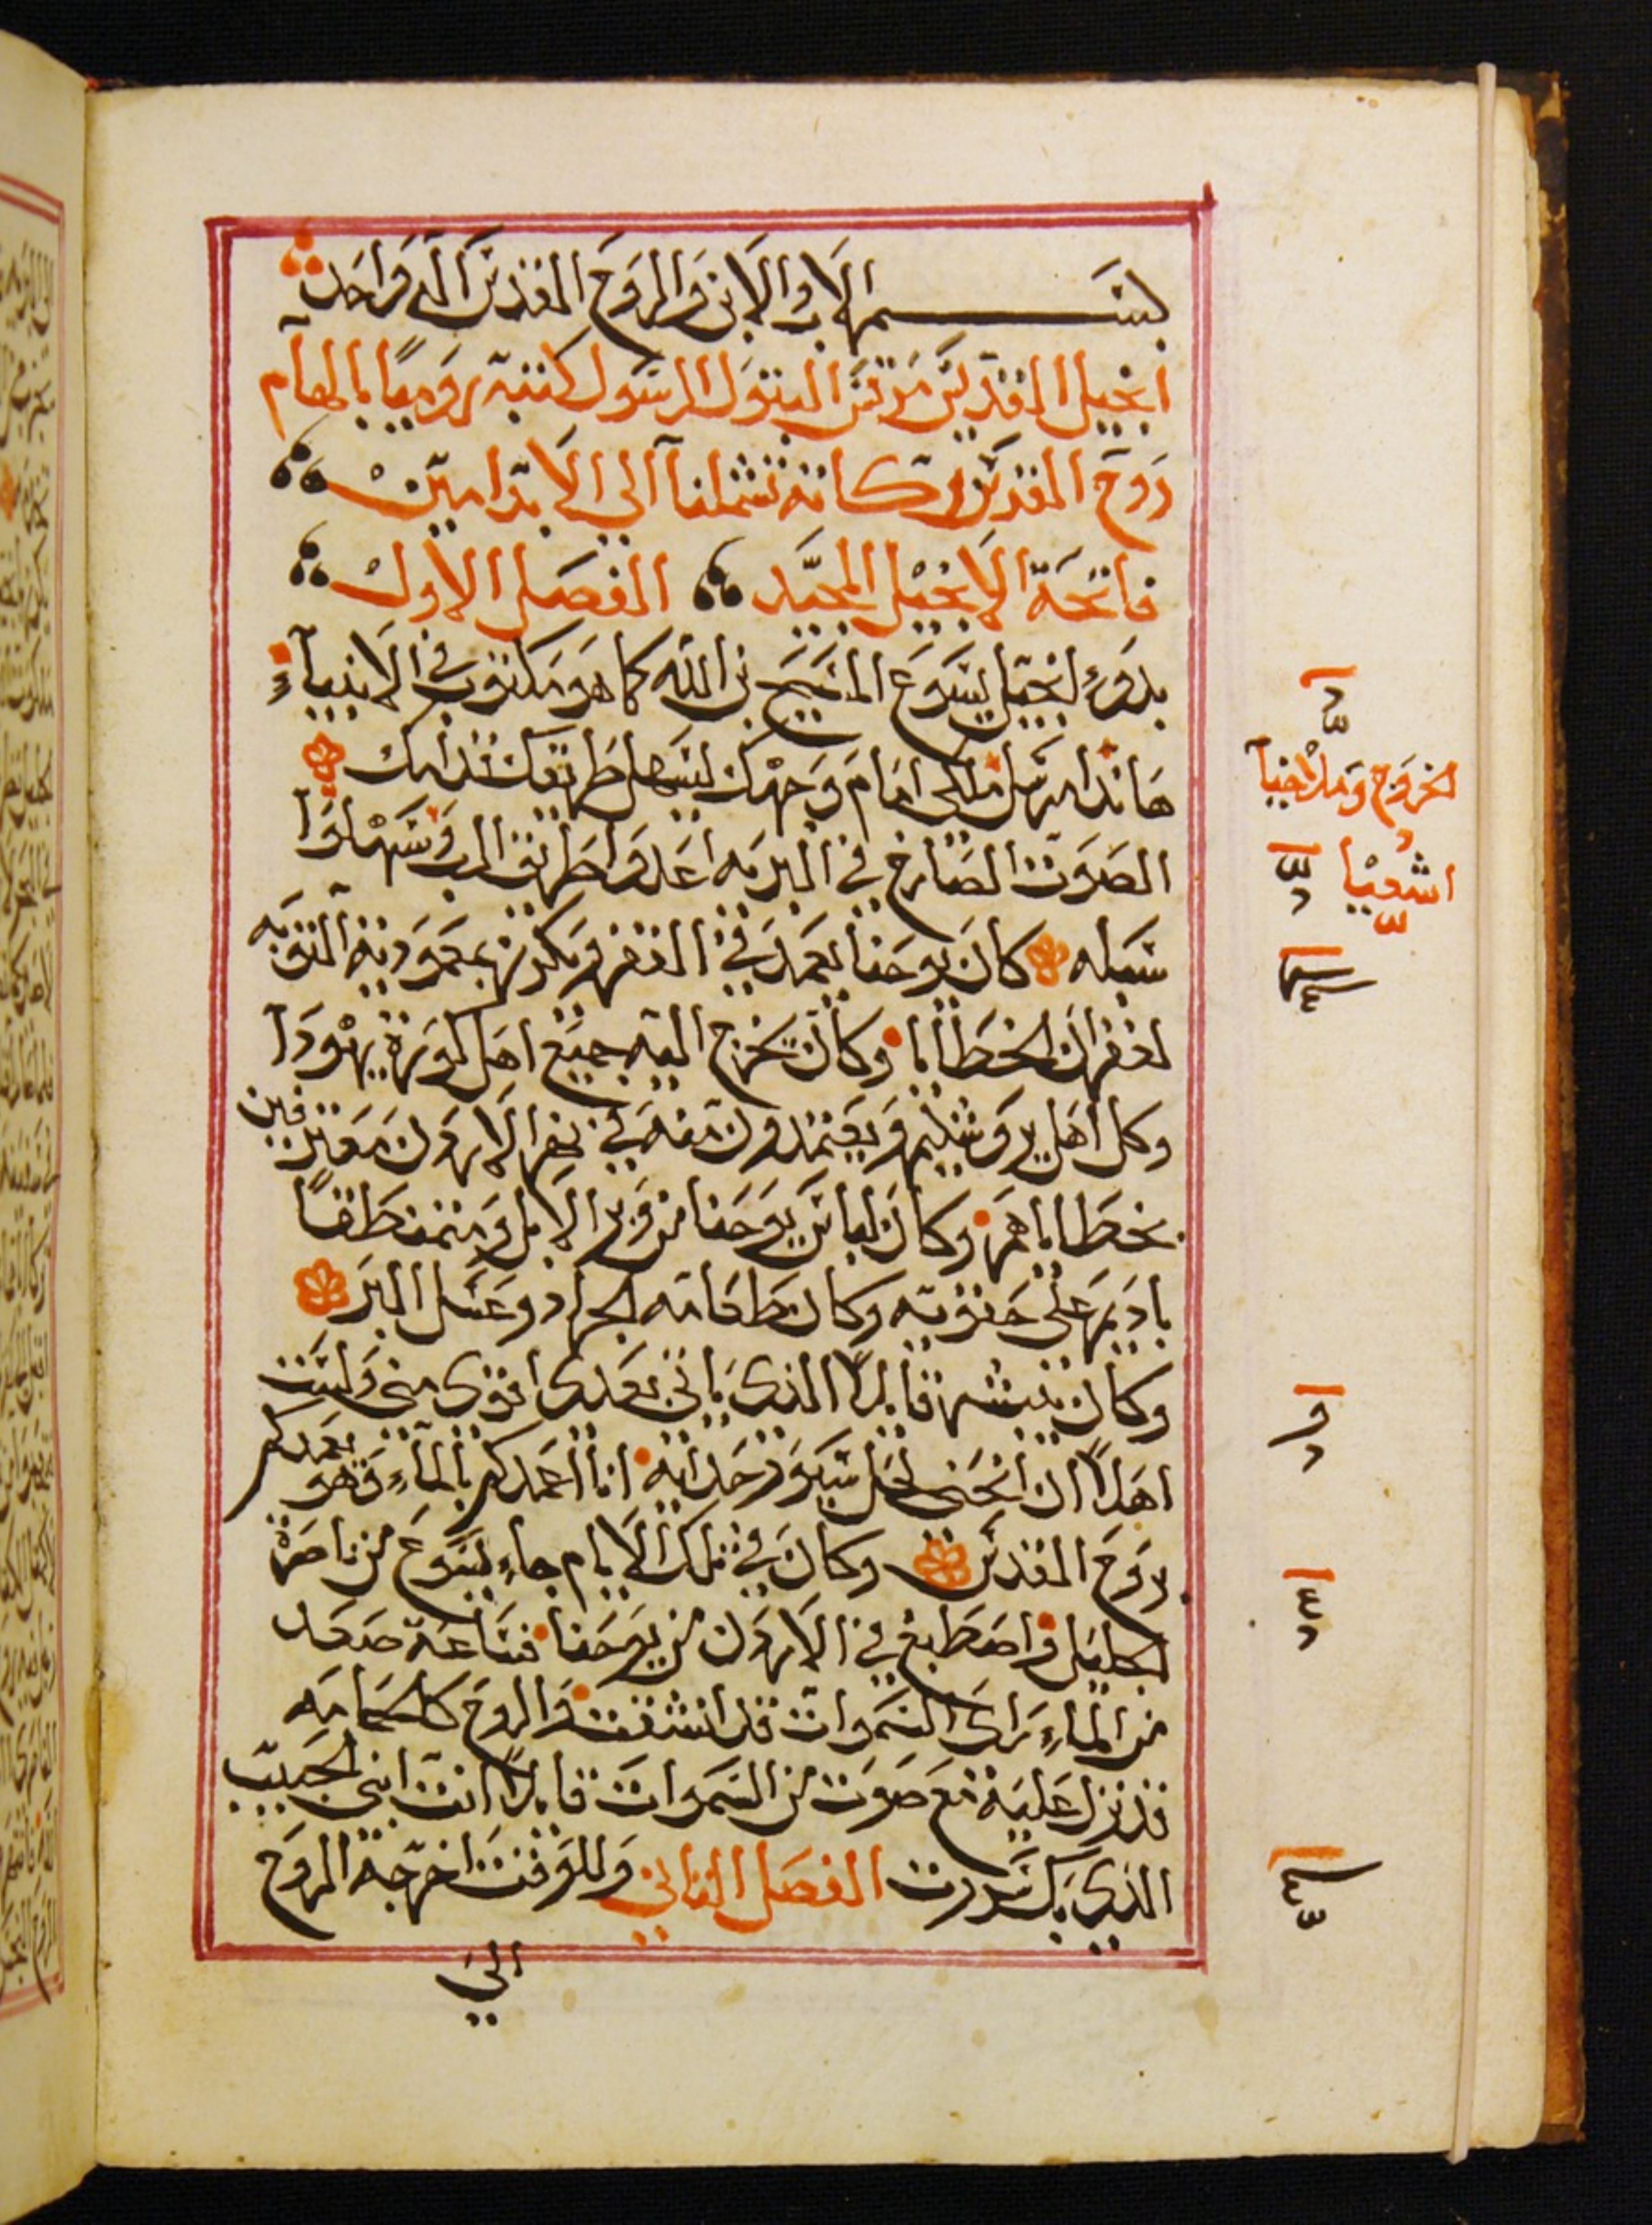 بســـــم الاب والابن والروح القدس اله واحد
انجيل القديس مرقس البتول الرسول كتبه روميا بالهام
روح القدس بركاته تشملنا الي الابد امين
فاتحة الانجيل المجيد الفصل الاول
بدوء انجيل يسوع المسيح بن الله كما هو مكتوب في الانبياء
هانذا مرسل ملاكي امام وجهك ليسهل طريقك قدامك
الصوت الصارخ في البريه اعدوا طريق الرب وسهلوا
سبله كان يوحنا يعمد في القفر ويكرز بمعموديه التوبه
لغفران الخطايا وكان يخرج اليه جميع اهل كورة يهودا
وكل اهل يروشليم ويعتمدون منه في نهر الاردن معترفين
بخطاياهم وكان لباس يوحنا من وبر الابل ومتمنطقا
باديم علي حقويه وكان طعامه الجراد وعسل البر
وكان يبشر قايلا الذي ياتي بعدي اقوي مني ولست
اهلا ان انحني لحل سيور حدايه انا اعمدكم بالماء وهو يعمدكم
بروح القدس وكان في تلك الايام جاء يسوع من ناصرة
الجليل واصطبغ في الاردن من يوحنا فساعة صعد
من الماء راي السموات قد انشقت والروح كالحمامه
قد نزل عليه مع صوت من السموات قايلا انت ابني الحبيب
الذي بك سررت الفصل الثاني وللوقت اخرجه الروح
الي
الخروج وملاخيا
اشعيا